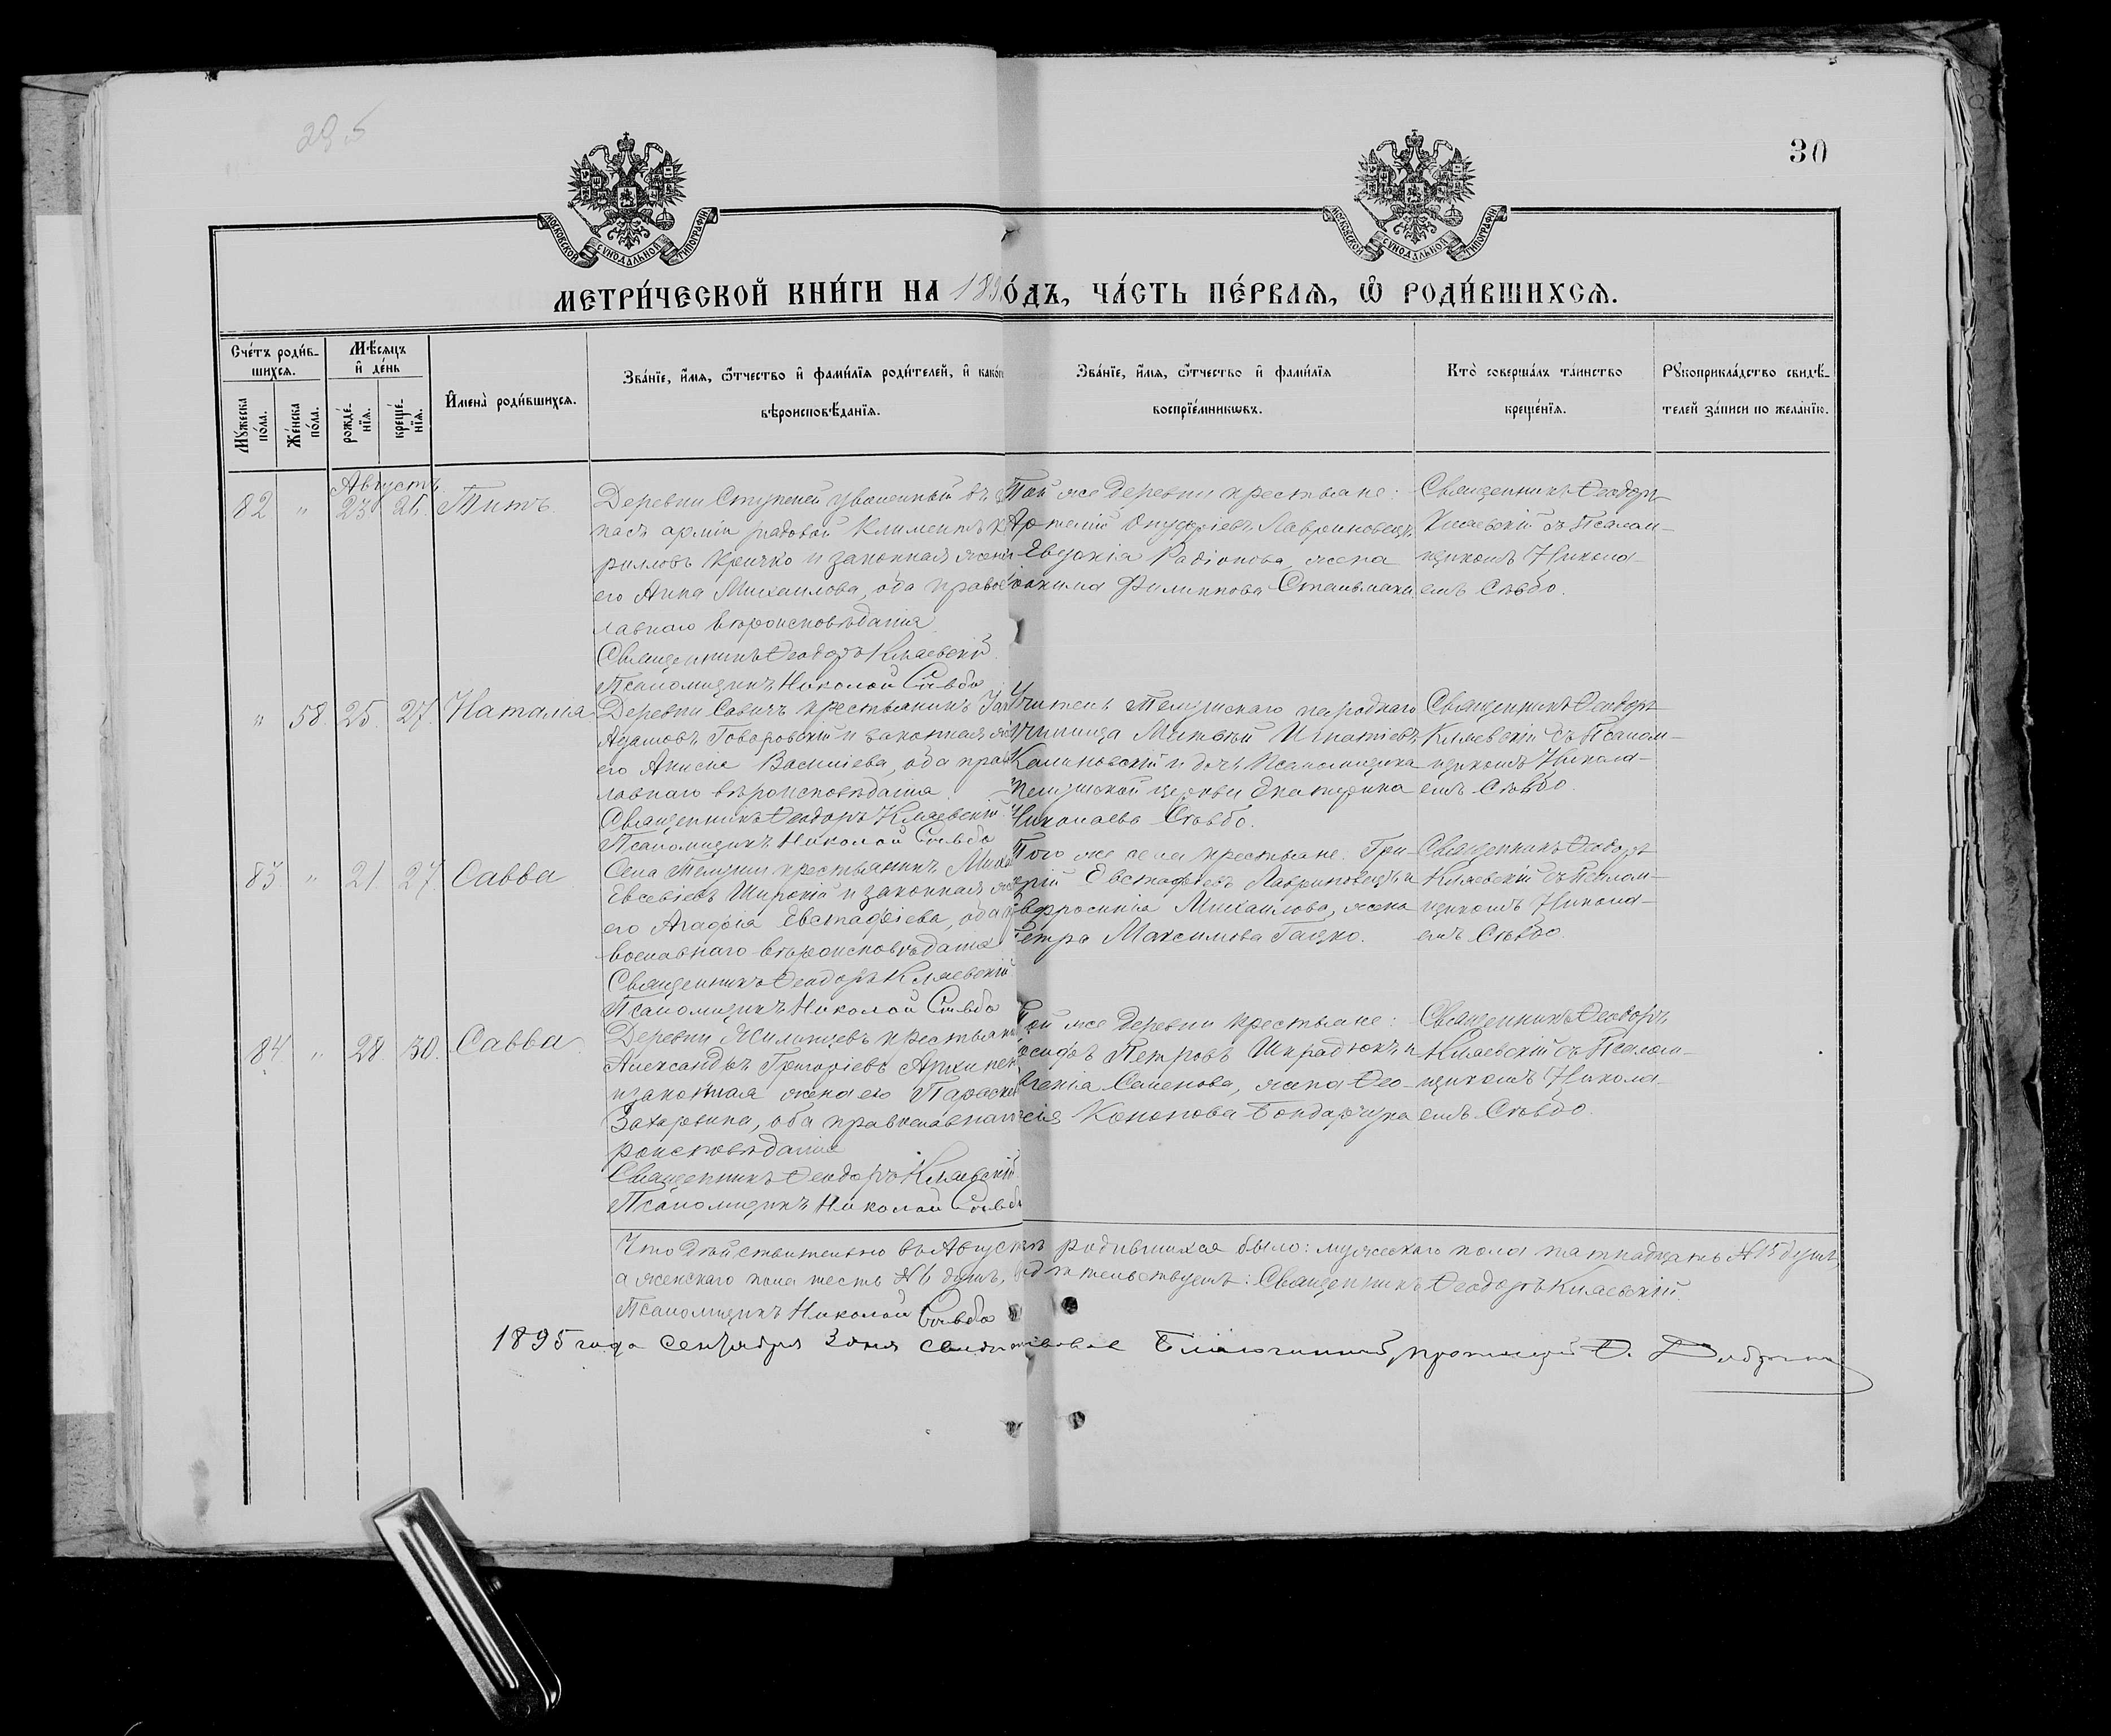 295
30
МОСКОВСКОЙ СУНОДАЛЬНОЙ ТИПОГРАФІИ
МОСКОВСКОЙ СУНОДАЛЬНОЙ ТИПОГРАФІИ
МЕТРИ́ЧЕСКОЙ КНИ́ГИ НА 189 О́ДЪ, ЧА́СТЬ ПЕ́РВАѦ, Ѿ РОДИ́ВШИХСѦ.
Сче́тъ роди́в-
шихсѧ.
Мꙋ́жеска по́ла.
Же́нска по́ла.
Мѣ́сѧцъ и҆ де́нь
рожде́-нїѧ.
креще́-нїѧ.
И҆мена̀ роди́вшихсѧ.
Зва́нїе, и҆́мѧ, ѻ҆́тчество и҆ фами́лїѧ роди́телей, и҆ како́гѡ
вѣроисповѣ́данїѧ.
Зва́нїе, и҆́мѧ, ѻ҆́тчество и҆ фами́лїѧ
воспрїе́мникѡвъ.
Кто̀ соверша́лъ та́инство
креще́нїѧ.
Рꙋкоприкла́дство свидѣ́-
телей за́писи по жела́нїю.
Августъ
82 " 23 26. Титъ
Деревни Ступеней уволенный въ
пасъ арміи рядовой Климентъ К
рилловъ Кричко и законная жена
его Анна Михаилова, оба правос
лавнаго вѣроисповѣданія
Священникъ Ѳеодоръ Кляевскій
Псаломщикъ Николай Сѣвбо
Той же деревни крестьяне:
Артемій Онуфріевъ Лавриновецъ
Евдокія Радіонова, жена
іоакима Филиппова Стельмаха
Священникъ Ѳеодоръ
Кляевскій съ Псалом-
щикомъ Никола-
емъ Сѣвбо.
" 58. 25. 27. Наталія
Деревни Савичъ крестьянинъ
Адамовъ Говоровскій и законная же
его Анисія Василіева, оба прав
лавнаго вѣроисповѣданія.
Священникъ Ѳеодоръ Кляевскій
Псаломщикъ Николай Сѣвбо
Учитель Телушскаго народнаго
училища Матвѣй Игнатіевъ
Калиновскій и дочь Псаломщика
церкви Екатерина
Николаева Сѣвбо.
Священникъ Ѳеодоръ
Кляевскій съ Псалом-
щикомъ Никола-
емъ Сѣвбо.
83. " 21. 27. Савва
Села крестьянинъ Миха
Евсевіевъ Широкій и законная же
его Агафія Евстафіева, оба п
вославнаго вѣроисповѣданія
Священникъ Ѳеодоръ Кляевскій
Псаломщикъ Николай Сѣвбо
Того же села крестьяне: Гри-
рій Евстафіевъ Лавриновецъ и
вфросинія Михаилова, жена
Петра Максимова Гацко.
Священникъ Ѳеодоръ
Кляевскій съ Псалом-
щикомъ Никола-
емъ Сѣвбо.
84. " 28. 30. Савва.
Деревни крестьянинъ
Александръ Григоріевъ
и законная жена его Параскев
Захаревна, оба православнаго
роисповѣданія
Священникъ Ѳеодоръ Кляевскій
Псаломщикъ Николай Сѣвбо
Той же деревни крестьяне:
Петровъ Шкрадюкъ и
вгенія Семенова, жена Ѳео-
сія Кононова Бондарчука
Священникъ Ѳеодоръ
Кляевскій съ Псалом-
щикомъ Никола-
емъ Сѣвбо.
Что дѣйствительно въ Августѣ родившихся было: мужескаго пола пятнадцать №15 душъ,
а женскаго пола шесть №6 душъ, свидѣтельствуемъ: Священникъ Ѳеодоръ Кляевскій.
Псаломщикъ Николай Сѣвбо
1895 года Сентября 3 дня свидѣтельствовалъ Благочинный, протоіерей Ѳ.